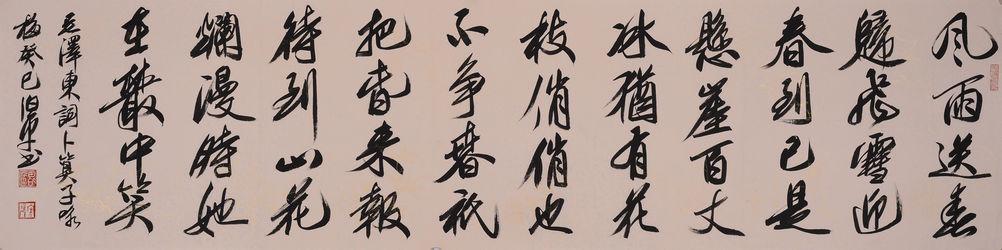 风雨送春
歸飛雪迎
春到已是
懸崖百丈
冰猶有花
枝俏俏也
不争春衹
把春来報
待到山花
爛漫時她
在叢中笑
毛澤東詞卜算子咏
梅癸巳书